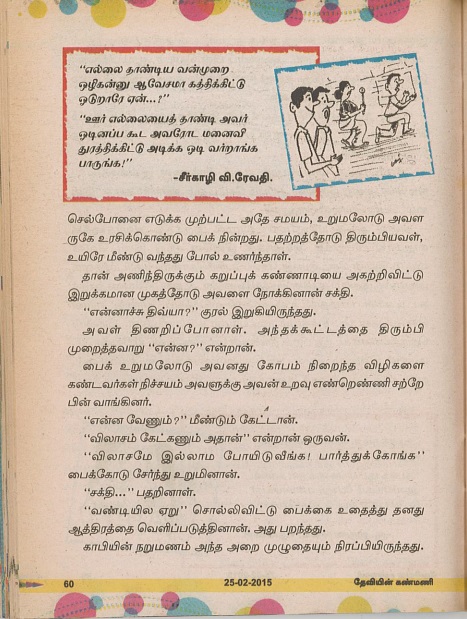 “எல்லை தாண்டிய வன்முறை
ஒழிகன்னு ஆவேசமா கத்திக்கிட்டு
ஓடுறாரே ஏன்...?”
“ஊர் எல்லையைத் தாண்டி அவர்
ஓடினப்ப கூட அவரோட மனைவி
துரத்திக்கிட்டு அடிக்க ஓடி வர்றாங்க
பாருங்க!”
-சீர்காழி வி.ரேவதி.
செல்போனை எடுக்க முற்பட்ட அதே சமயம், உறுமலோடு அவள
ருகே உரசிக்கொண்டு பைக் நின்றது. பதற்றத்தோடு திரும்பியவள்,
உயிரே மீண்டு வந்தது போல் உணர்ந்தாள்.
தான் அணிந்திருக்கும் கறுப்புக் கண்ணாடியை அகற்றிவிட்டு
இறுக்கமான முகத்தோடு அவளை நோக்கினான் சக்தி.
“என்னாச்சு திவ்யா?” குரல் இறுகியிருந்தது.
அவள் திணறிப்போனாள். அந்தக்கூட்டத்தை திரும்பி
முறைத்தவாறு “என்ன?” என்றான்.
பைக் உறுமலோடு அவனது கோபம் நிறைந்த விழிகளை
கண்டவர்கள் நிச்சயம் அவளுக்கு அவன் உறவு எண்றெண்ணி சற்றே
பின் வாங்கினர்.
“என்ன வேணும்?” மீண்டும் கேட்டான்.
“விலாசம் கேட்கணும் அதான்” என்றான் ஒருவன்.
“விலாசமே இல்லாம போயிடுவீங்க! பார்த்துக்கோங்க”
பைக்கோடு சேர்ந்து உறுமினான்.
“சக்தி...” பதறினாள்.
“வண்டியில ஏறு” சொல்லிவிட்டு பைக்கை உதைத்து தனது
ஆத்திரத்தை வெளிப்படுத்தினான். அது பறந்தது.
காபியின் நறுமணம் அந்த அறை முழுதையும் நிரப்பியிருந்தது.
60 25-02-2015 தேவியின் கண்மணி